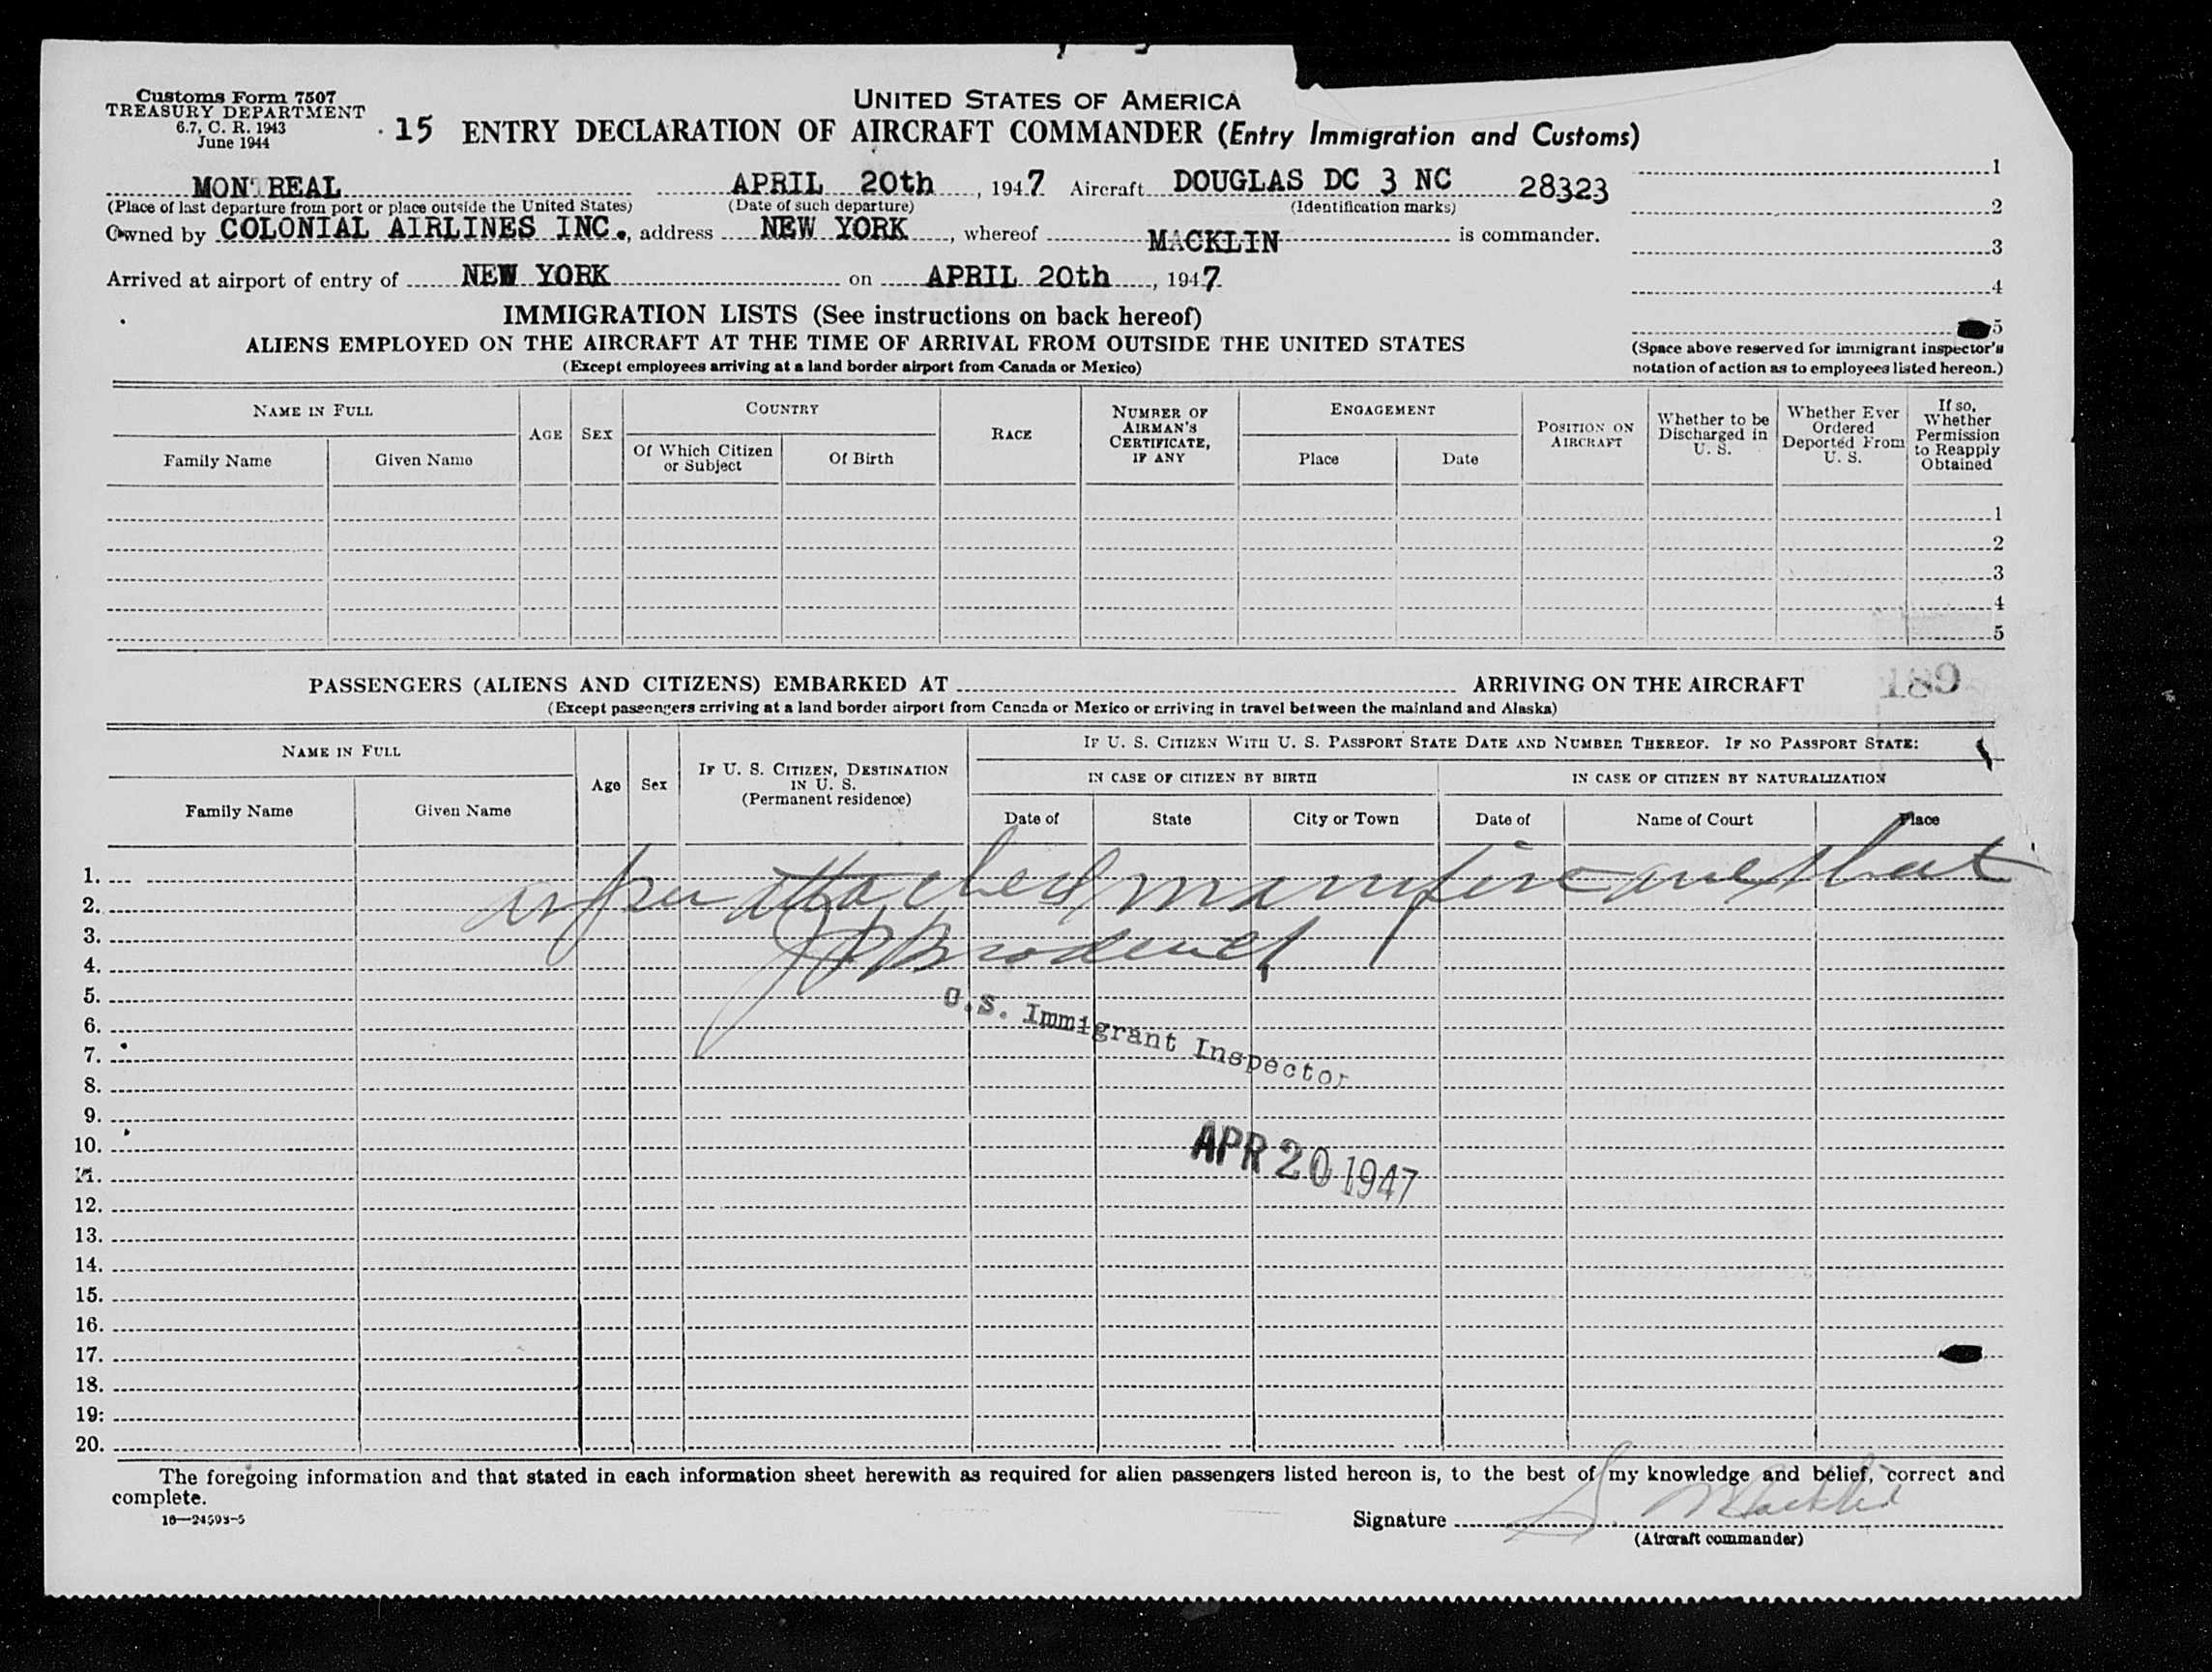 Customs Form 7507
TREASURY DEPARTMENT
6.7, C. R. 1943
June 1944
UNITED STATES OF AMERICA
15 ENTRY DECLARATION OF AIRCRAFT COMMANDER (Entry Immigration and Customs)
MONTREAL APRIL 20th, 1947 Aircraft DOUGLAS DC 3 NC 28323
(Place of last departure from port or place outside the United States) (Date of such departure) (Identification marks)
Owned by COLONIAL AIRLINES INC., address NEW YORK, whereof MACKLIN is commander.
Arrived at airport of entry of NEW YORK on APRIL 20th, 1947
1
2
3
4
5
(Space above reserved for immigrant inspector's
notation of action as to employees listed hereon.)
IMMIGRATION LISTS (See instructions on back hereof)
ALIENS EMPLOYED ON THE AIRCRAFT AT THE TIME OF ARRIVAL FROM OUTSIDE THE UNITED STATES
(Except employees arriving at a land border airport from Canada or Mexico)
NAME IN FULL
Family Name
Given Name
AGE
SEX
COUNTRY
Of Which Citizen
or Subject
Of Birth
RACE
NUMBER OF
AIRMAN'S
CERTIFICATE,
IF ANY
ENGAGEMENT
Place
Date
POSITION ON
AIRCRAFT
Whether to be
Discharged in
U. S.
Whether Ever
Ordered
Deported From
U. S.
If so,
Whether
Permission
to Reapply
Obtained
1
2
3
4
5
PASSENGERS (ALIENS AND CITIZENS) EMBARKED AT ARRIVING ON THE AIRCRAFT
189
(Except passengers arriving at a land border airport from Canada or Mexico or arriving in travel between the mainland and Alaska)
NAME IN FULL
Family Name
Given Name
Age
Sex
IF U. S. CITIZEN, DESTINATION
IN U. S.
(Permanent residence)
IF U. S. CITIZEN WITH U. S. PASSPORT STATE DATE AND NUMBER THEREOF. IF NO PASSPORT STATE:
IN CASE OF CITIZEN BY BIRTH
IN CASE OF CITIZEN BY NATURALIZATION
Date of
State
City or Town
Date of
Name of Court
Place
as per attached manifest
1.
2.
3.
4.
5.
6.
7.
8.
9.
10.
11.
12.
13.
14.
15.
16.
17.
18.
19.
20.
U.S. Immigrant Inspector
APR 20 1947
The foregoing information and that stated in each information sheet herewith as required for alien passengers listed hereon is, to the best of my knowledge and belief, correct and
complete.
16—24593-5
Signature S. Macklin
(Aircraft commander)